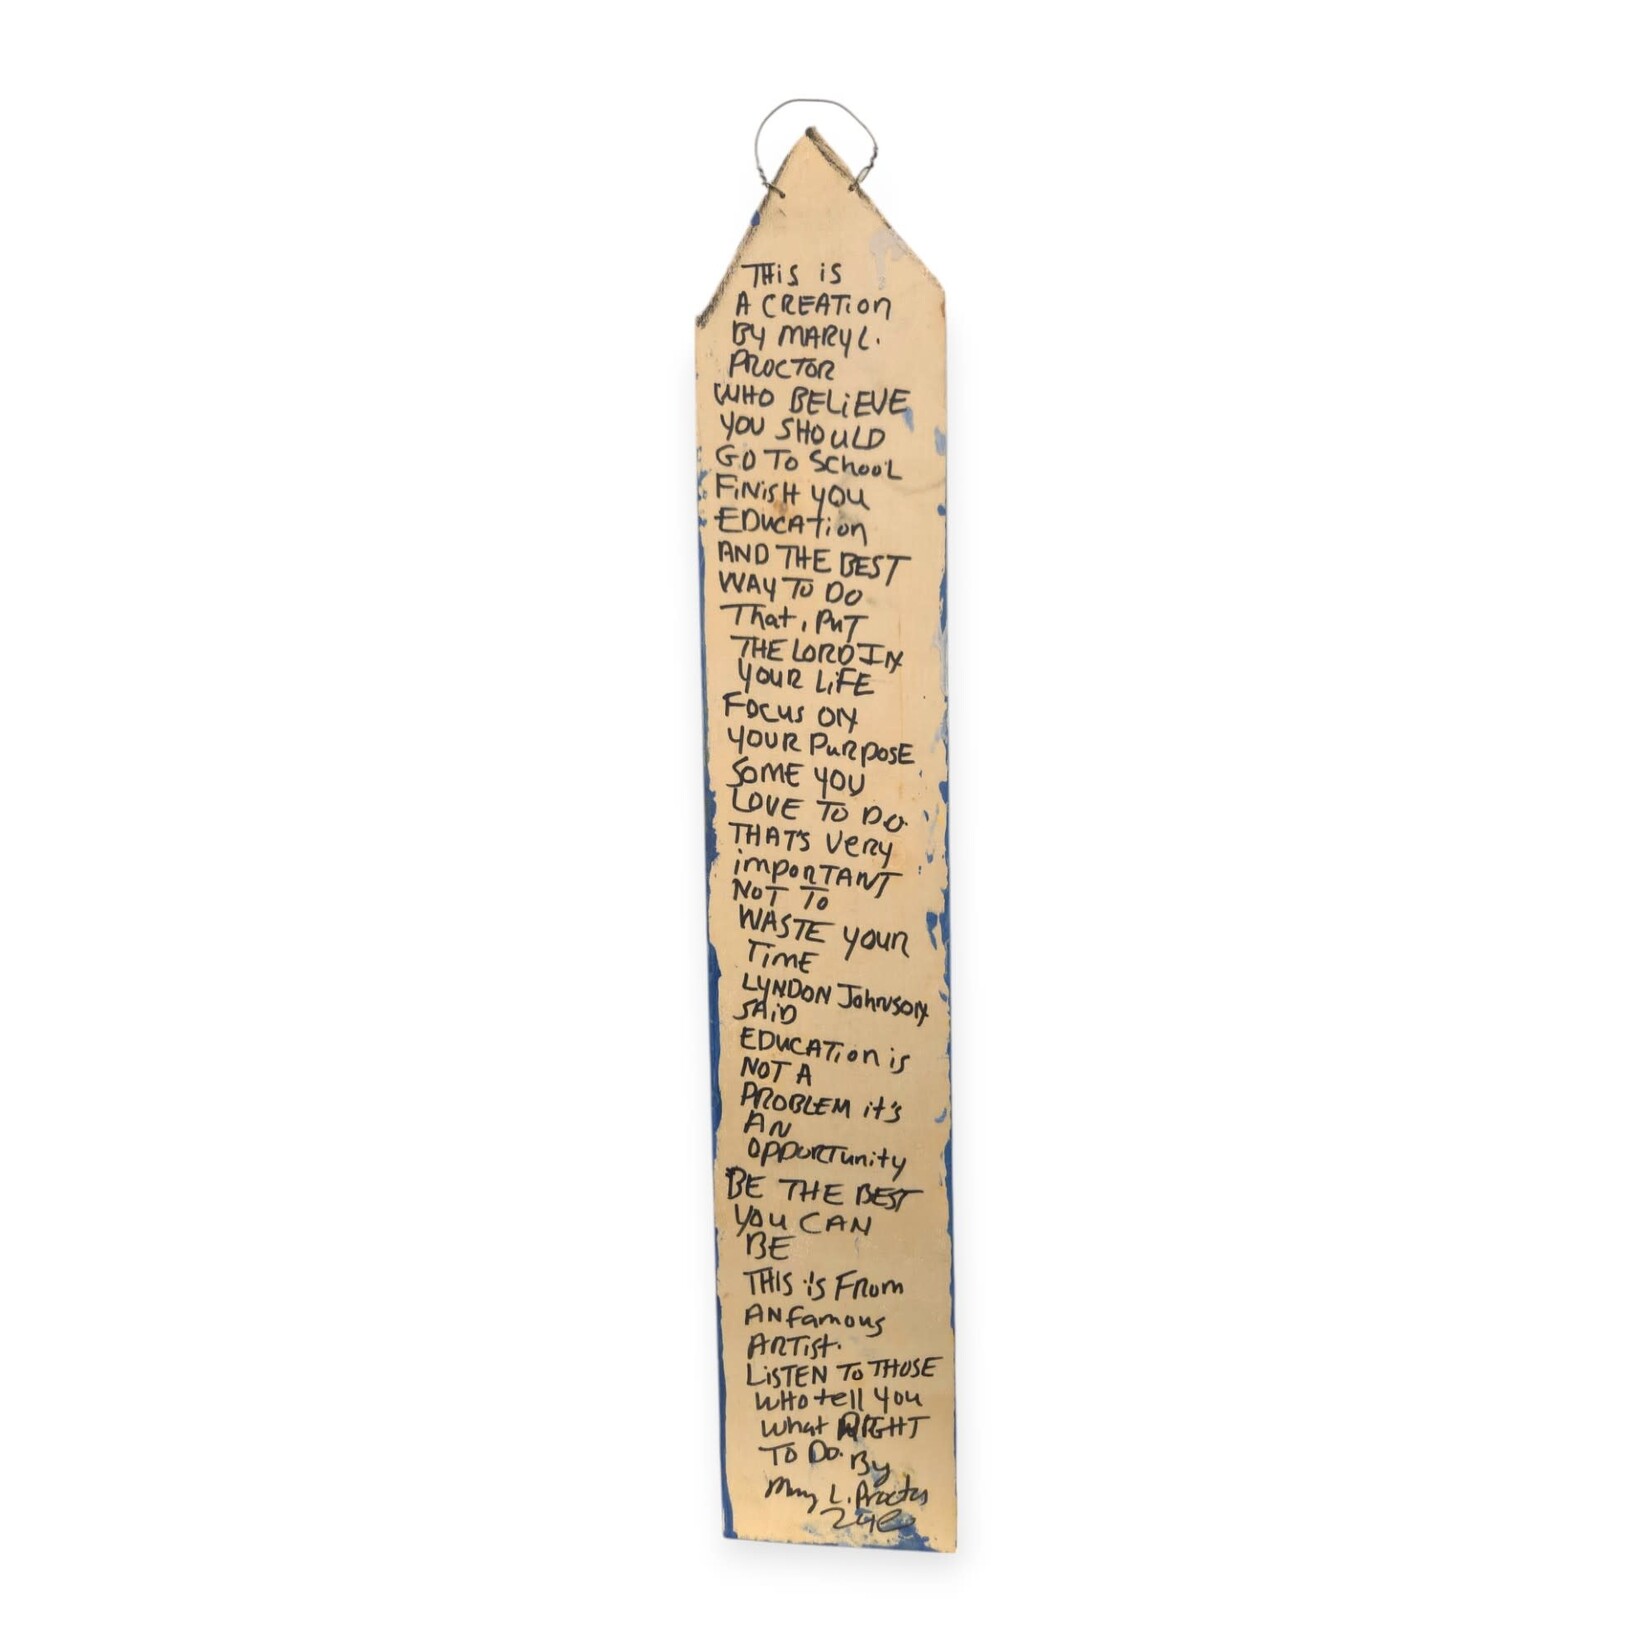 THiS iS
A CREATion
BY MARY L.
PROCTOR
WHO BELiEVE
YOU SHOULD
GO TO SchooL
FiNiSH YOU
EDUCATion
AND THE BEST
WAY TO DO
That, PuT
THE LORD IN
YOUR LiFE
FOCUS ON
YOUR PuRposE
SOME YOU
LOVE TO DO.
THAT'S VERY
impoRTANT
NOT TO
WASTE YOUR
TimE
LYNDON JohnSON
SAiD
EDUCATion is
NOT A
PROBLEM it's
AN
OPPORTunity
BE THE BEST
YOU CAN
BE
THIS is FRom
AN Famous
ARTist.
LiSTEN TO THOSE
WHO tell You
What RIGHT
TO DO. By
Mary L. Proctor